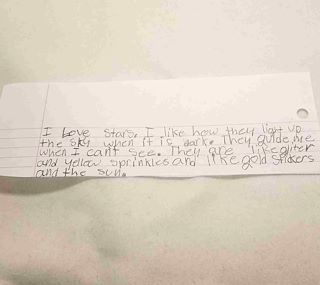 I Love stars. I like how they light up
the sky when it is dark. They guide me
when I cant see. They are like gliter
and yellow sprinkles and like gold stickers
and the sun.